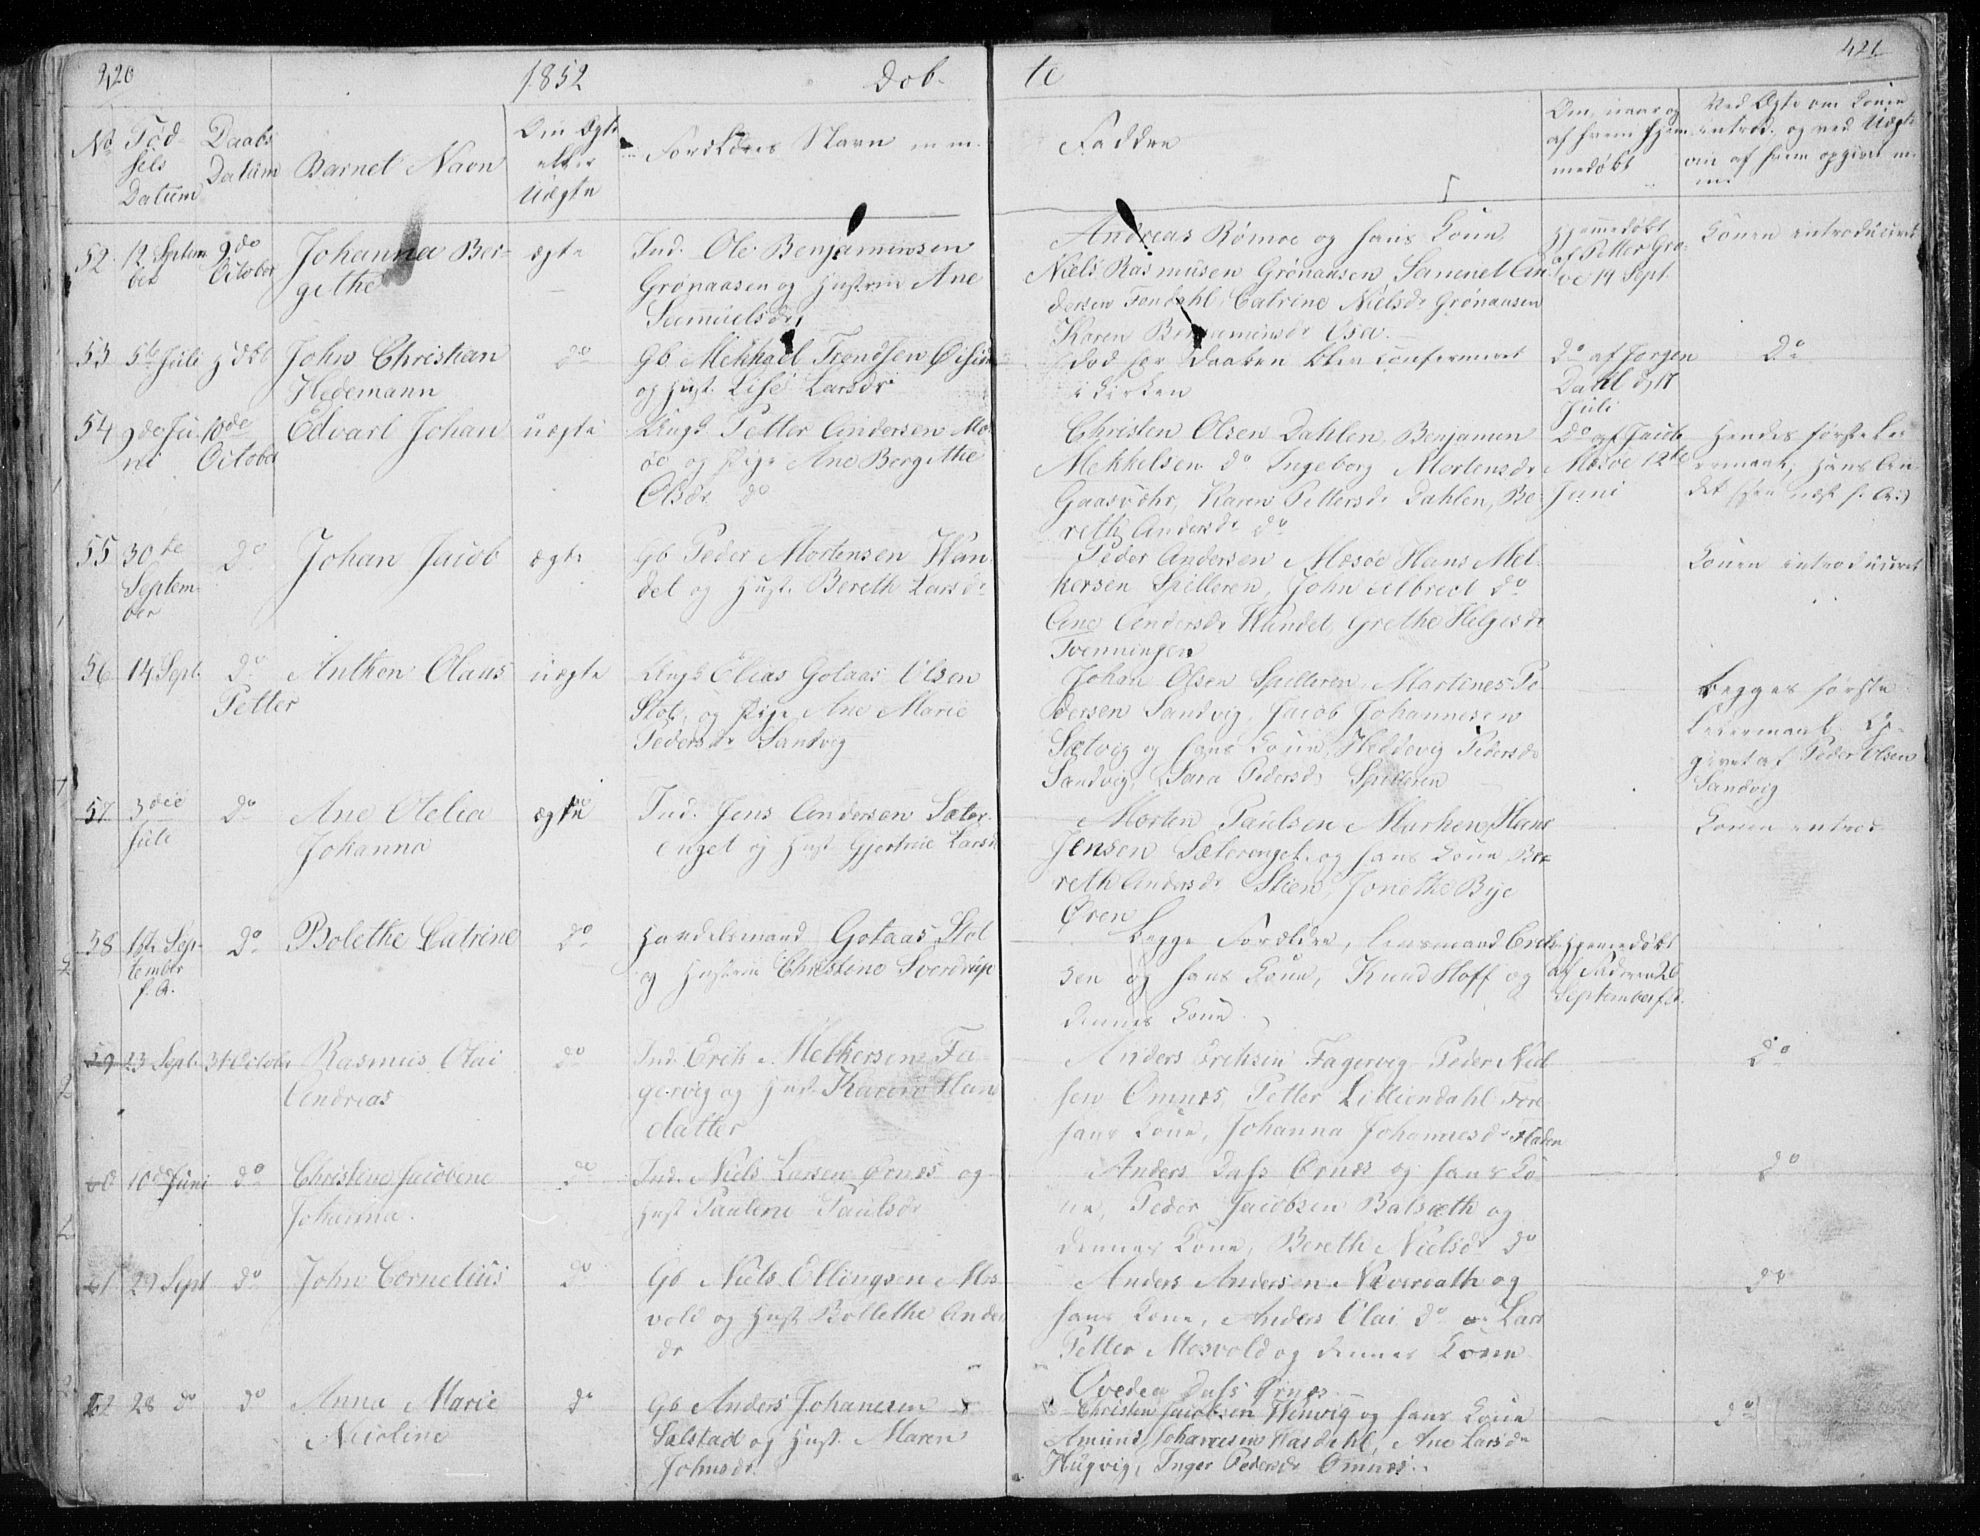 420
1852
Døb-
te
421
No
Fød-
sels
Datum
Daabs
Datum
Barnet Navn
Om Ægte
eller
Uægte
Forældres Navn m. m.
Faddre
Om, naar og
af hvem hjem
medøbt
Ved Ægte om Konen
introd. og ved Uægte
om af hvem opgivet m.
m.
52
12 Septem
ber
9de
October
Johanna Ber-
githe
ægte
Ind. Ole Benjaminsen
Grønaasen og Hustrue Ane
Samuelsdr
Andreas Rømoe og hans Kone,
Niels Rasmusen Grønaasen, Samuel An
dersen Fondahl, Catrine Nielsdr Grønaasen
Karen Benjaminsdr Osa.
Hjemmedøbt
af Petter Gro-
ve 14 Sept
Konen introduceret
53
5te Juli
John Christian
Hedemann
do
Gb. Mekkael Trondsen
og Hust. Lise Larsdr
Død før Daaben blev confermeret
i Kirken
Do af Jørgen
Dahl d. 17
Juli
Do
54
9de Ju
ni
10de
October
Edvart Johan
uægte
Ungk. Petter Andersen Mæ
søe og Pige Ane Bergithe
Olsdr do
Christen Olsen Dahlen, Benjamin
Mekkelsen do Ingeborg Mortensdr
Karen Pettersdr Dahlen, Be-
reth Andersdr do
Do af Jacob
Mæsøe 12te
Juni
Hendes første Lei
ermaal, hans An
det
55
30te
Septem-
ber
Do
Johan Jacob
ægte
Gb Peder Mortensen Wan
del og Hust. Bereth Larsdr
Peder Andersen Mæsøe Hans Mel-
kersen Spilleren, John Albrect do
Ane Andersdr Wandel, Grethe Helgesdr
Tvenningen
Konen introduceret
56
14 Sept.
Do
Anthon Olaus
Petter
uægte
Ungk Elias Gotaas Olsen
Stot, og Pige Ane Marie
Pedersdr Sandvig
Johan Olsen Spilleren, Martines Pe
dersen Sandvig, Jacob Johannesen
Sætvig og hans Kone, Heddevig Pedersdr
Sandvig, Sara Pedersdr Spilleren
Begges første
Leiermaal. Op-
givet af Peder Olsen
Sandvig
57
3die
Juli
Do
Ane Otelia
Johanna
ægte
Ind. Jens Andersen Sæter-
enget og Hust Gjertrue Larsdr
Morten Paulsen Marken, Hans
Jensen Sæterenget og hans Kone Be-
reth Andersdr Stien, Jonethe Bye
Øren
Konen introd.
58
Sep-
tember
f. A.
Do
Bolethe Catrine
Do
Handelsmand Gotaas Stot
og Hustrue Christine Sverdrup
Begge Forældre, Lensmand Erik
sen og hans Kone, Knud Hoff og
dennes Kone
Hjemmedøbt
af Faderen 26
September f. A.
59
23 Sept
31 October
Rasmus Olai
Andreas
do
Ind. Erik Melkersen Fa-
gervig og Hust Karen Han
datter
Anders Eriksen Fagervig Peder Niel
sen Omnes, Petter Lilliendahl Fore
hans Kone, Johanna Johannesdr Haden
Do
60
10de Juni
do
Christine Jacobine
Johanna.
do
Ind. Niels Larsen Ørnes og
Hust Pauline Paulsdr
Anders Dass Ørnes og hans Ko
ne, Peder Jacobsen Balsæth og
dennes Kone, Bereth Nielsdr do
Do
61
29 Sept
do
John Cornelius
Do
Gb Niels Ellingsen Mos
vold og Hust Bollethe Anders
dr
Anders Andersen Neveraath og
hans Kone, Anders Olai do Lars
Petter Mosvold og dennes Kone
Ovedea Dass Ørnes
do
62
28 do
do
Anna Marie
Nicoline
do
Gb Anders Johanesen
Salstad og Hust. Maren
Johnsdr
Christen Jacobsen Wenvig og hans Kone
Amund Johannesen Vasdahl, Ane Larsdr
Hugvig, Inger Pedersdr Omnes
do